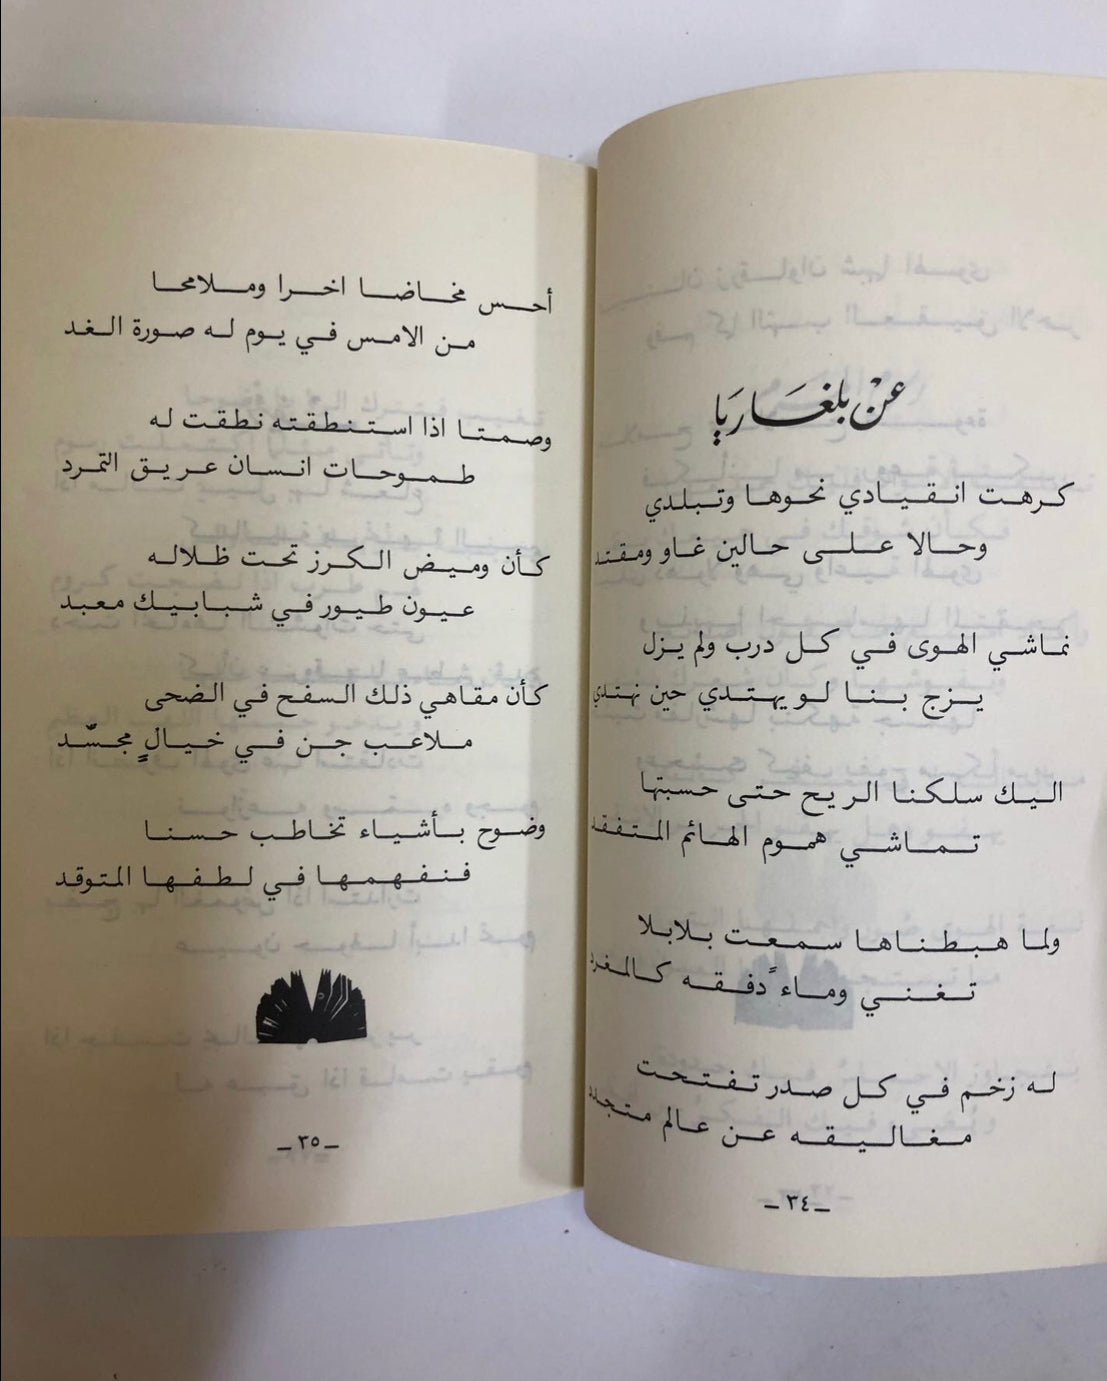 عَنْ بلغَاريَا
كرهت انقيادي نحوها وتبلدي
وحالا على حالين غاو ومقتد
نماشي الهوى في كل درب ولم يزل
يزج بنا لو يهتدي حين نهتدي
اليك سلكنا الريح حتى حسبتها
تماشي هموم الهائم المتفقد
ولما هبطناها سمعت بلابلا
تغني وماءً دفقه كالمغرد
له زخم في كل صدر تفتحت
مغاليقه عن عالم متجدد
ـ ٣٤ ـ
أحس مخاضا اخرا وملامحا
من الامس في يوم له صورة الغد
وصمتا اذا استنطقته نطقت له
طموحات انسان عريق التمرد
كأن وميض الكرز تحت ظلاله
عيون طيور في شبابيك معبد
كأن مقاهي ذلك السفح في الضحى
ملاعب جن في خيالٍ مجسّد
وضوح بأشياء تخاطب حسنا
فنفهمها في لطفها المتوقد
ـ ٣٥ ـ